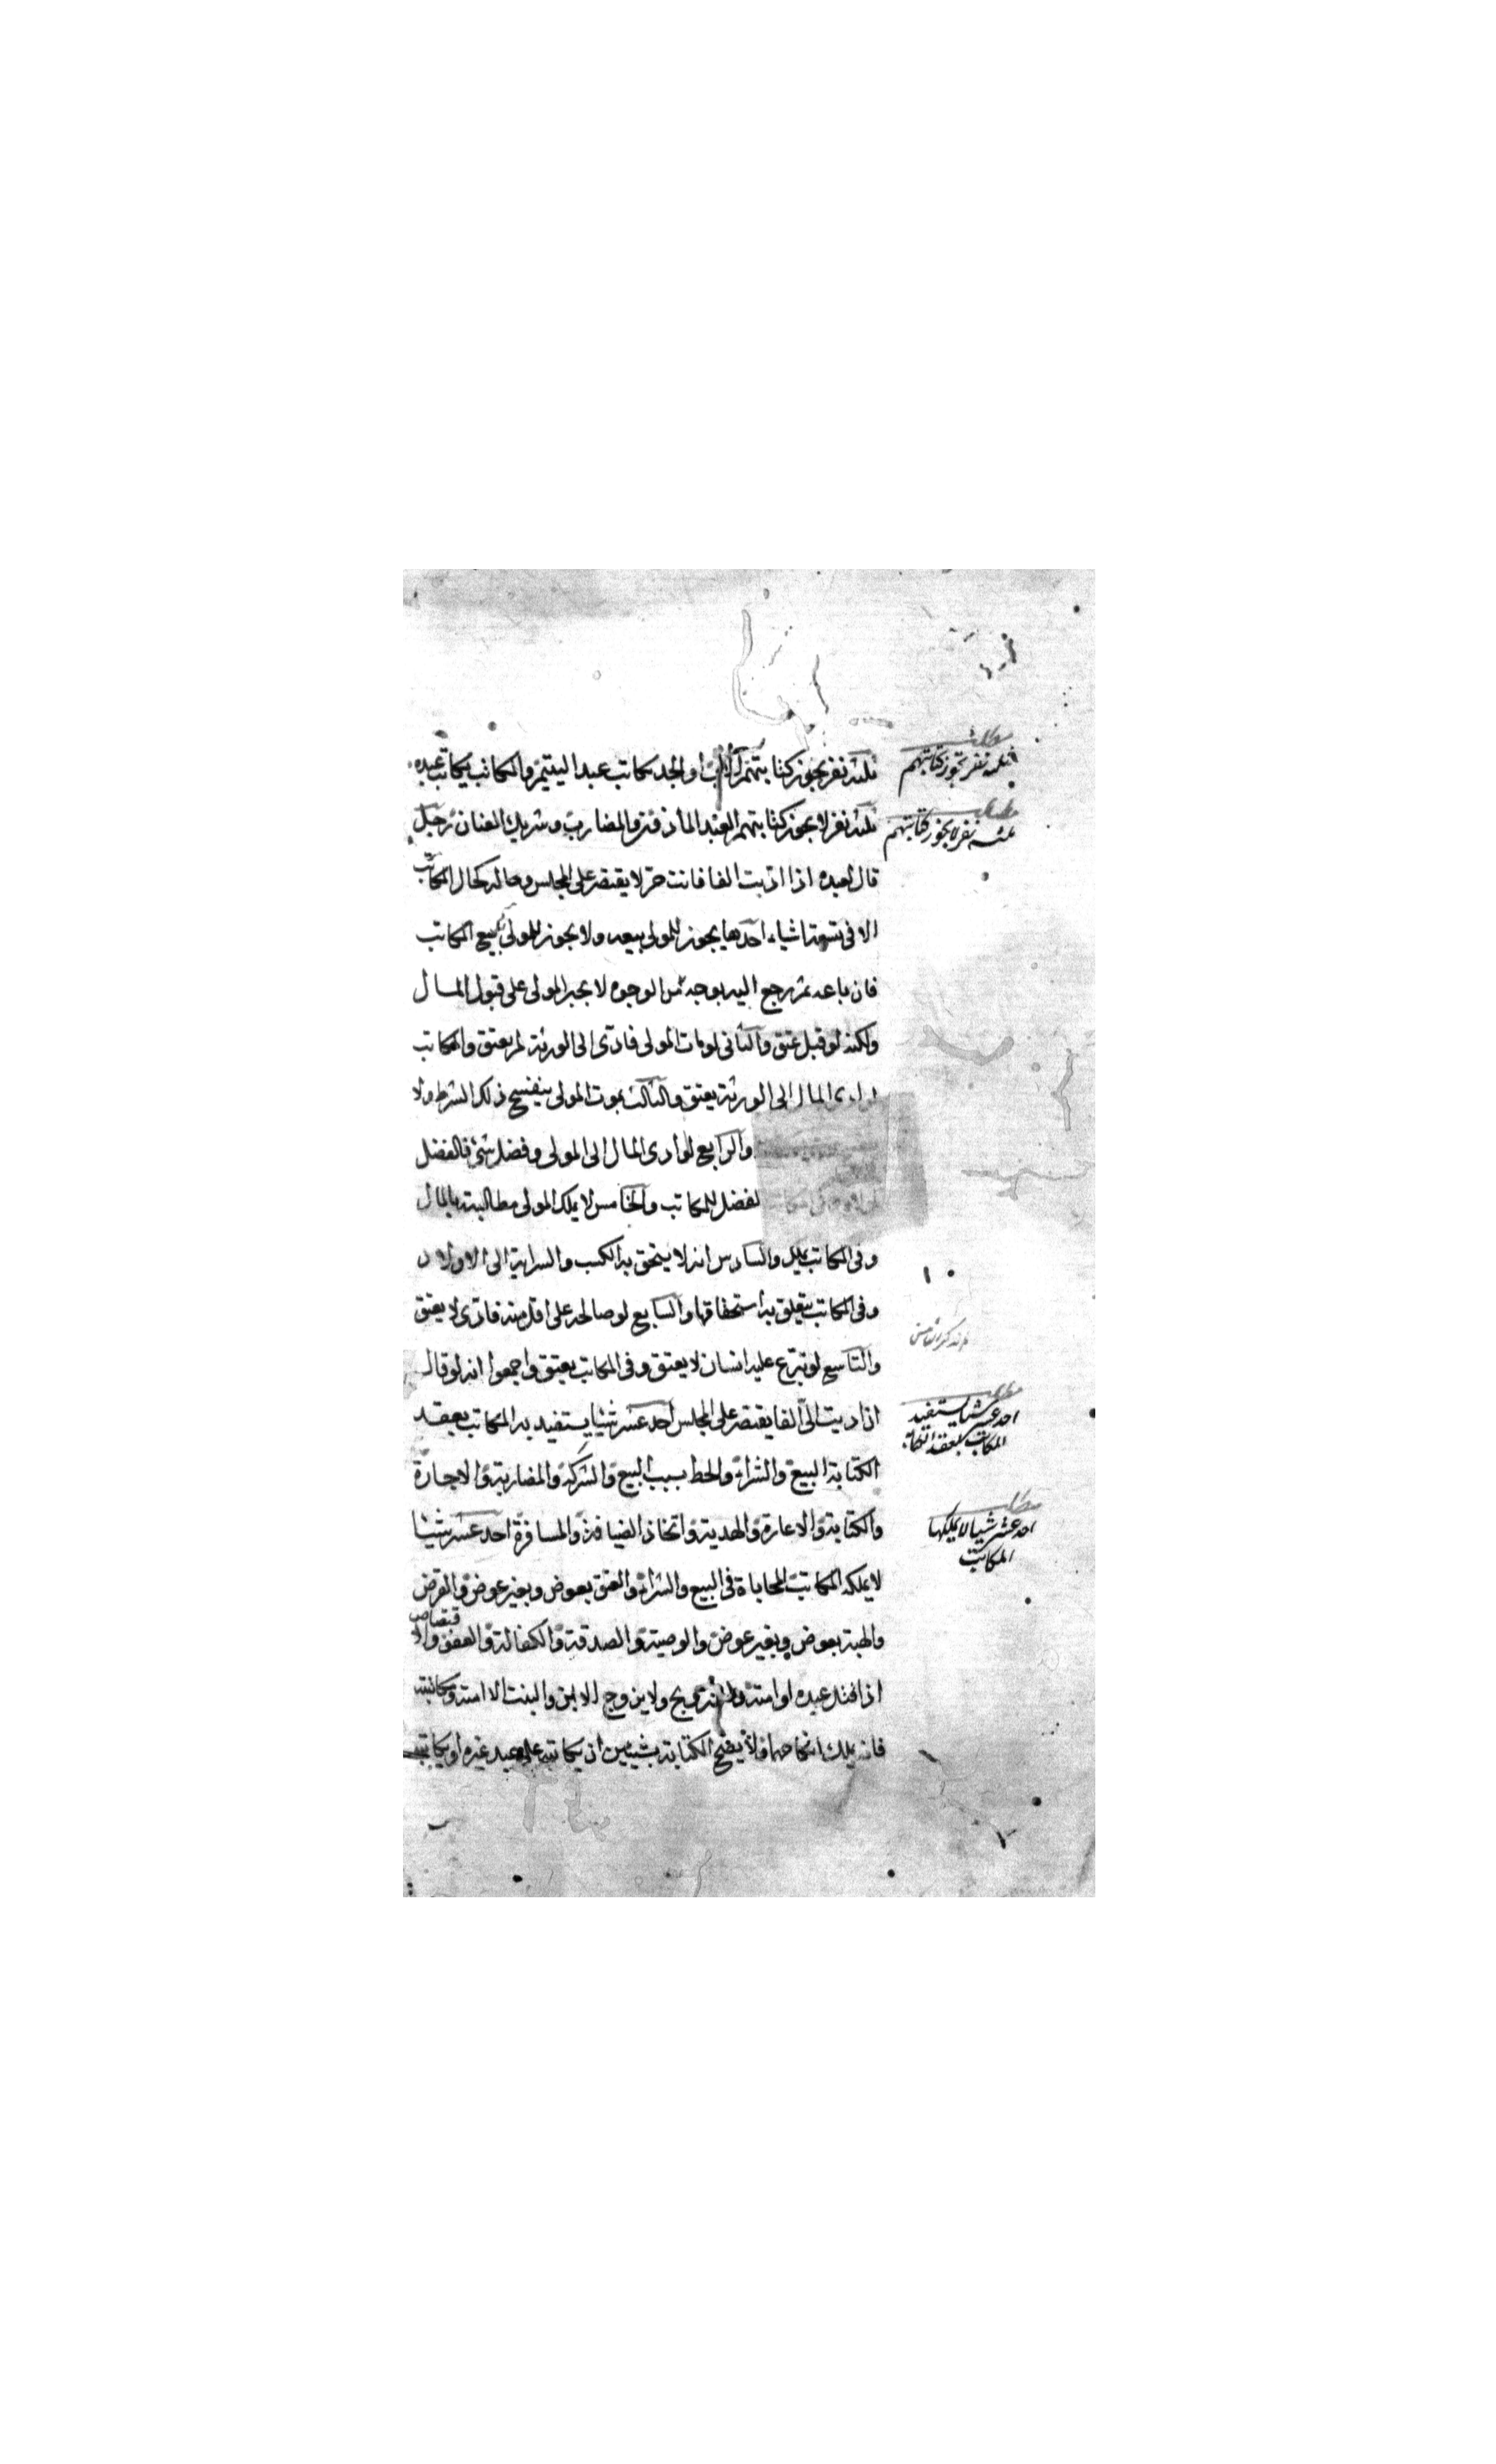 ثلثة نفر يجوز كتابتهم الاب او الجد يكاتب عبد اليتيم والمكاتب يكاتب عبده
ثلثة نفر لا يجوز كتابتهم العبد المأذون والمضارب وشريك العنان رجل
قال لعبده اذا اديت الفا فانت حر لا يقتصر على المجلس وحاله كحال المكاتب
الا فى تسعة اشياء احدها يجوز للمولى بيعه ولا يجوز للمولى بيع المكاتب
فان باعه ثم رجع اليه بوجه من الوجوه لا يجبر المولى على قبول المال
ولكنه لو قبل عتق والثانى لو مات المولى فادى الى الورثة لم يعتق والمكاتب
المال الى الورثة يعتق والثالث بموت المولى ينفسخ ذلك الشرط ولا
والرابع لو أدى المال الى المولى وفضل شئ فالفضل
لفضل للمكاتب والخامس لا يملك المولى مطالبته بالمال
وفى المكاتب يملك والسادس انه لا يستحق به الكسب والسراية الى الاولاد
وفى المكاتب يتعلق به استحقاقها والسابع لو صالحه على اقل منه فادى لا يعتق
والتاسع لو تبرع عليه انسان لا يعتق وفى المكاتب يعتق واجمعوا انه لو قال
ان اديت الىّ الفا يقتصر على المجلس احد عشر شيئا يستفيد به المكاتب بعقد
الكتابة البيع والشراء والحط بسبب البيع والشركة والمضاربة والاجارة
والكتابة والاعارة والهدية واتخاذ الضيافة والمسافرة احد عشر شيئا
لا يملكه المكاتب المحاباة فى البيع والشراء والعتق بعوض وبغير عوض والقرض
والهبة بعوض وبغير عوض والوصية والصدقة والكفالة والعفو والا
قتصاص
اذا قتل عبده او امته والتزويج ولا يزوج الابن والبنت الا امته ومكاتبته
فانه يملك انكاحهما ولا يصح الكتابة بشيئين ان يكاتبه على عبد غيره او يكاتبه
مطلب
ثلثة نفر تجوز كتابتهم
مطلب
ثلثة نفر لا يجوز كتابتهم
لم يذكر الثامن
مطلب
احد عشر شيئا يستفيد
المكاتب بعقد الكتابة
مطلب
احد عشر شيئا لا يملكها
المكاتب